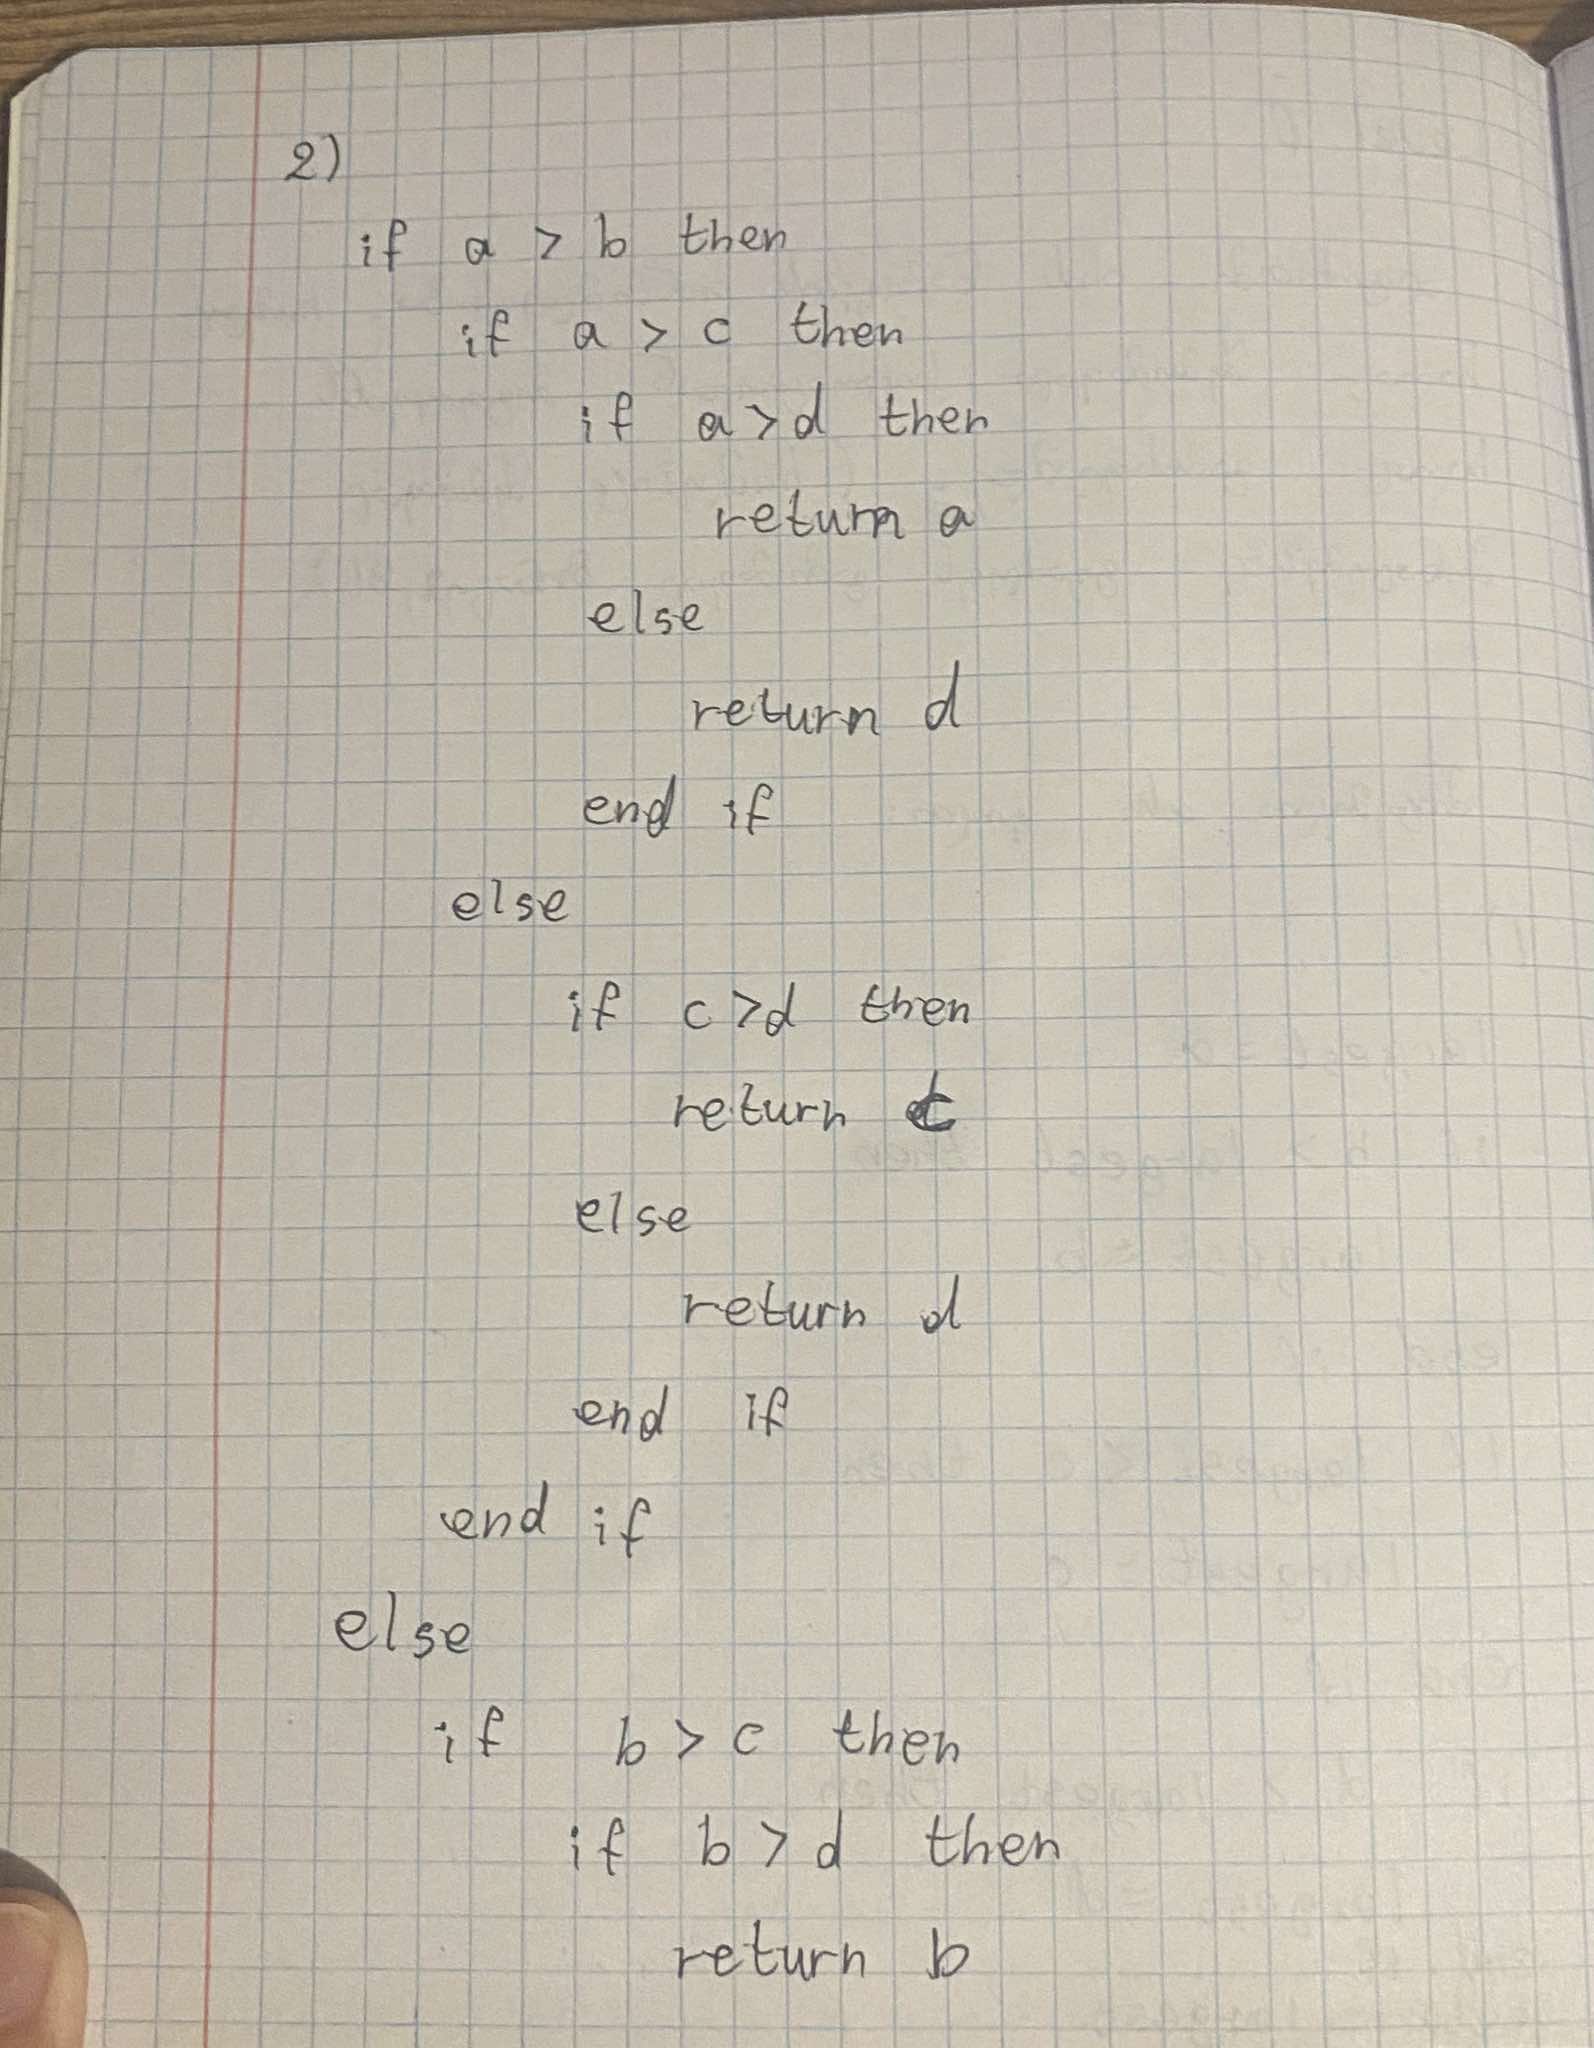 2)
if a > b then
if a > c then
if a > d then
return a
else
return d
end if
else
if c > d then
return c
else
return d
end if
end if
else
if b > c then
if b > d then
return b